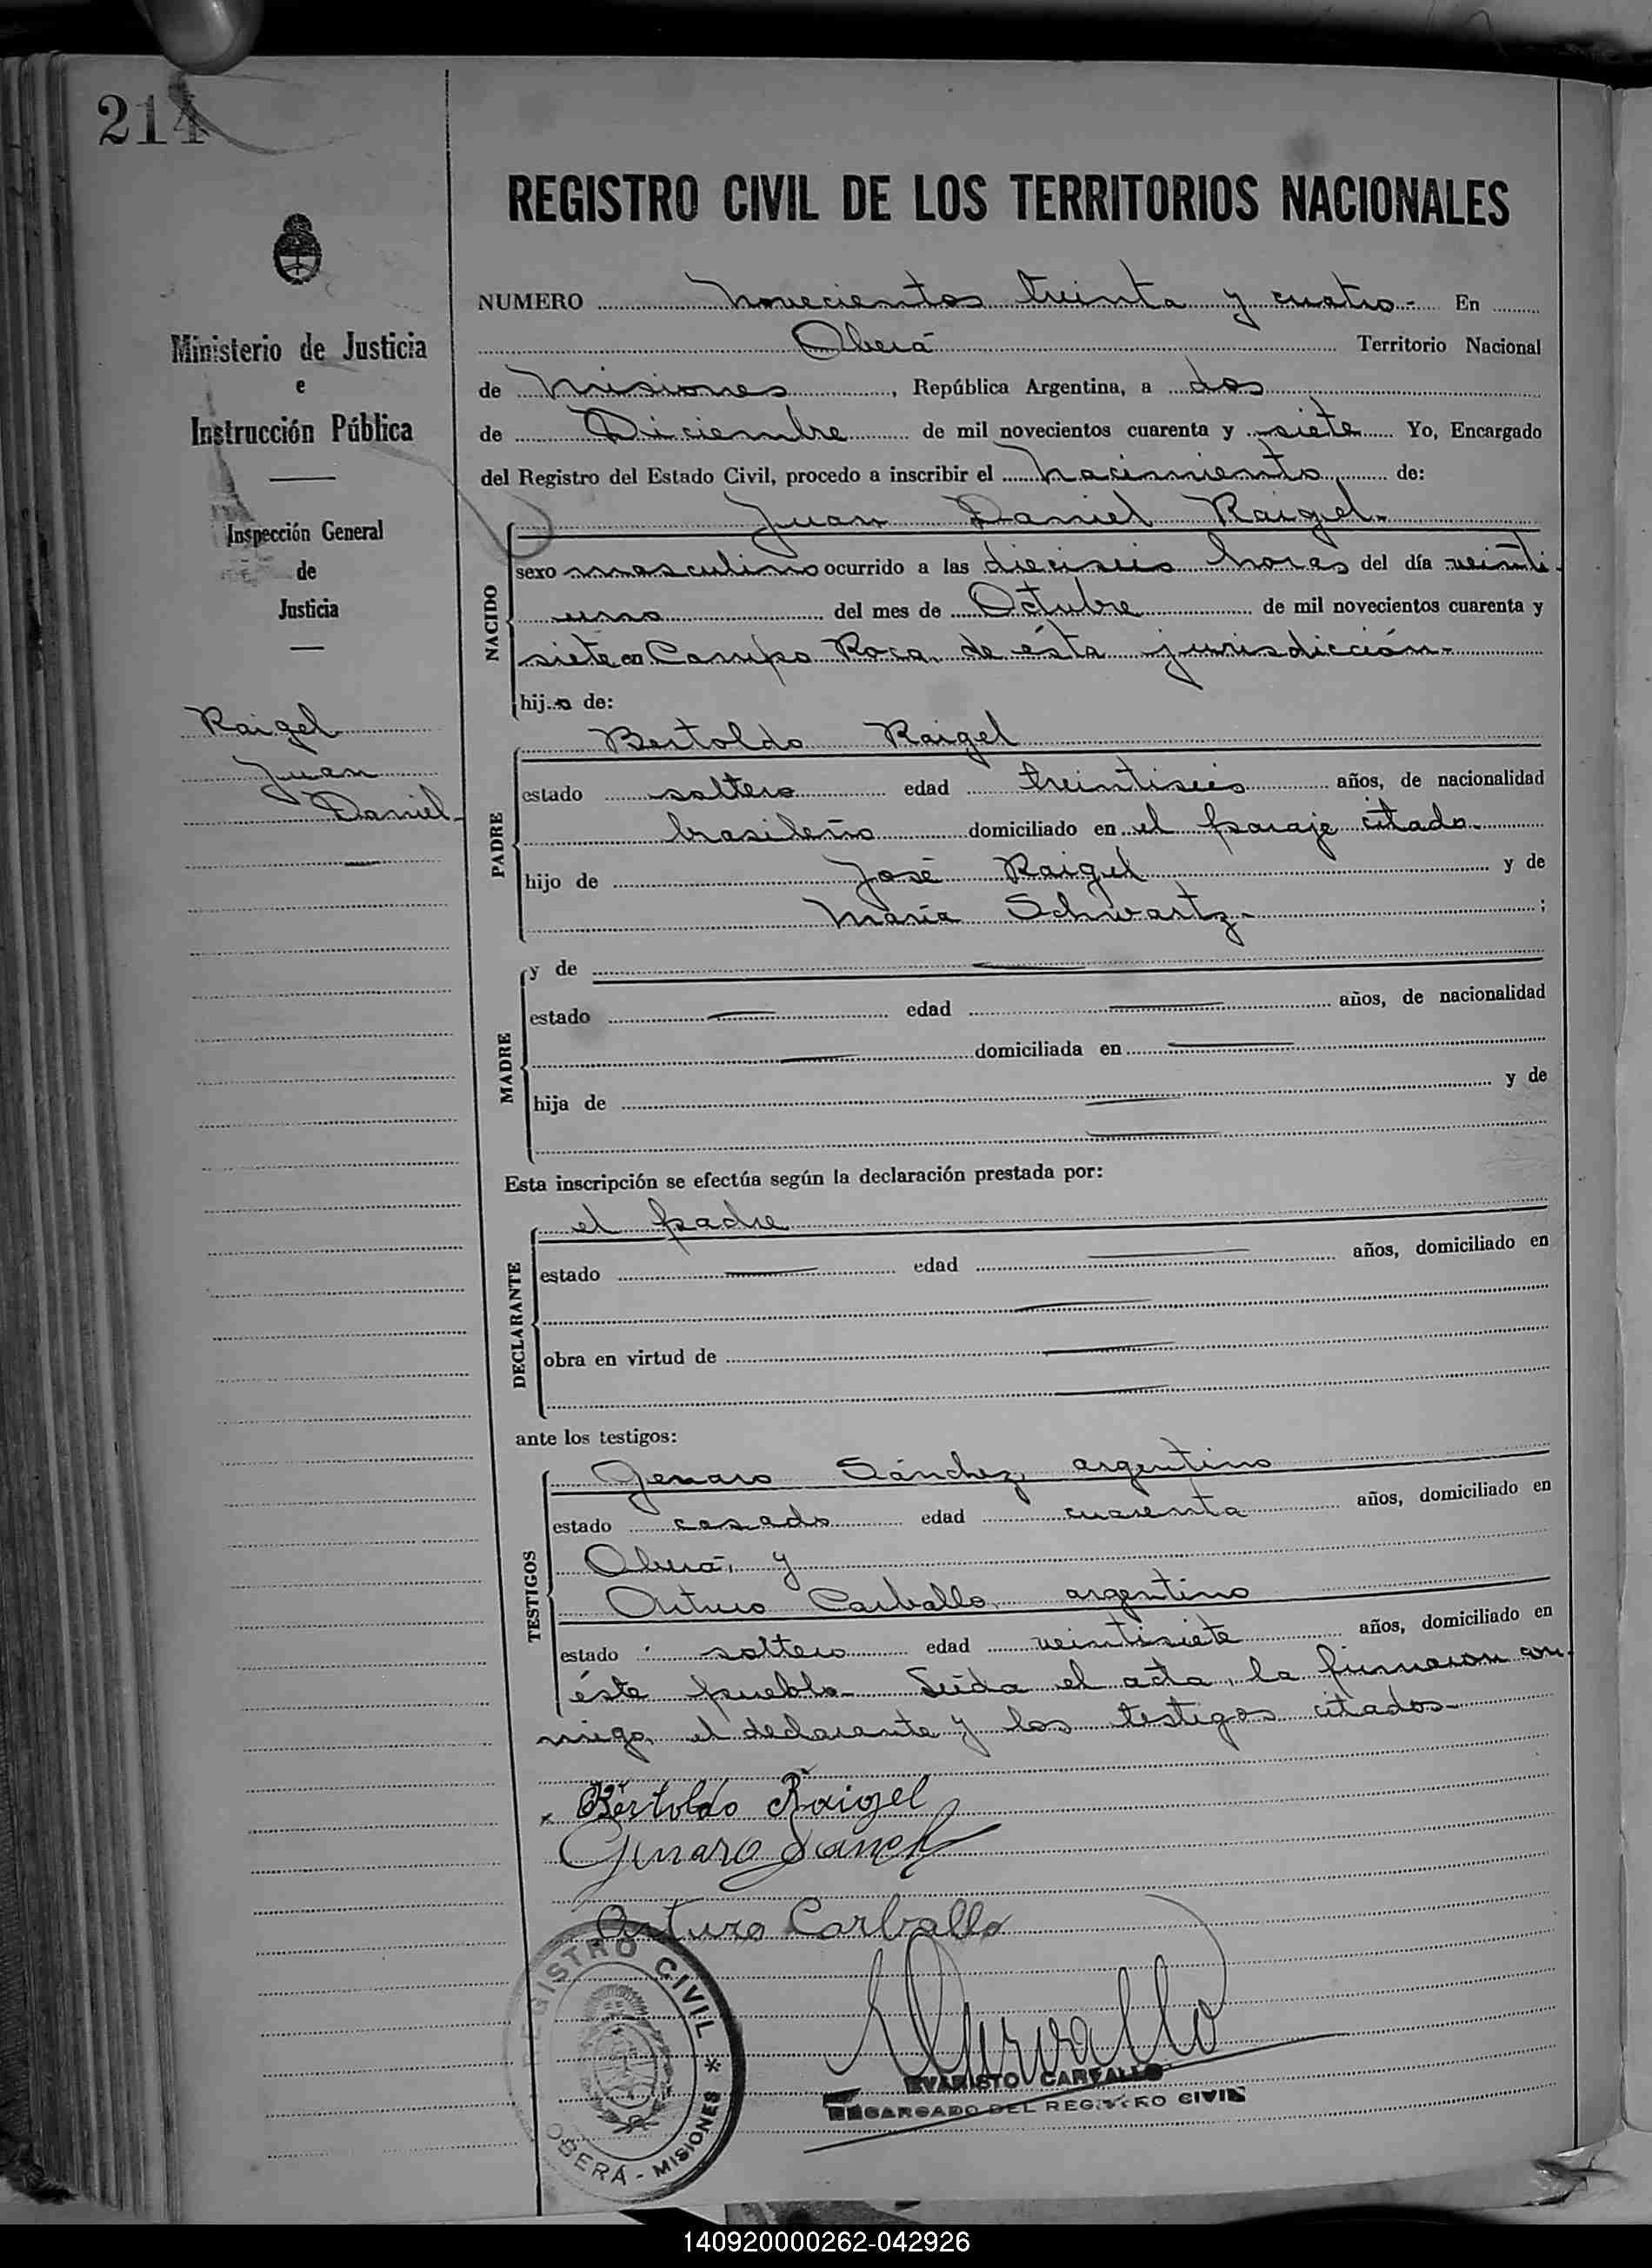 214
REGISTRO CIVIL DE LOS TERRITORIOS NACIONALES
Ministerio de Justicia
e
Instrucción Pública
Inspección General
de
Justicia
Raigel
Juan
Daniel
NUMERO novecientos treinta y cuatro- En
Oberá Territorio Nacional
de Misiones, República Argentina, a dos
de Diciembre de mil novecientos cuarenta y siete Yo, Encargado
del Registro del Estado Civil, procedo a inscribir el Nacimiento de:
NACIDO
Juan Daniel Raigel-
sexo masculino ocurrido a las dieciseis horas del día veinti-
uno del mes de Octubre de mil novecientos cuarenta y
siete en Campo Roca, de ésta jurisdicción-
hijo de:
PADRE
Bertoldo Raigel
estado soltero edad treintiseis años, de nacionalidad
brasileño domiciliado en el paraje citado
hijo de José Raigel y de
María Schwartz- ;
MADRE
y de
estado edad años, de nacionalidad
domiciliada en
hija de y de
Esta inscripción se efectúa según la declaración prestada por:
DECLARANTE
el padre
estado edad años, domiciliado en
obra en virtud de
ante los testigos:
TESTIGOS
Genaro Sánchez, argentino
estado casado edad cuarenta años, domiciliado en
Oberá, y
Arturo Carballo, argentino
estado soltero edad veintisiete años, domiciliado en
éste pueblo- Leída el acta, la firmaron con-
migo, el declarante y los testigos citados-
Bertoldo Raigel
Genaro Sanch
Arturo Carballo
REGISTRO CIVIL * OBERÁ - MISIONES
EVARISTO CARBALLO
ENCARGADO DEL REGISTRO CIVIL
140920000262-042926